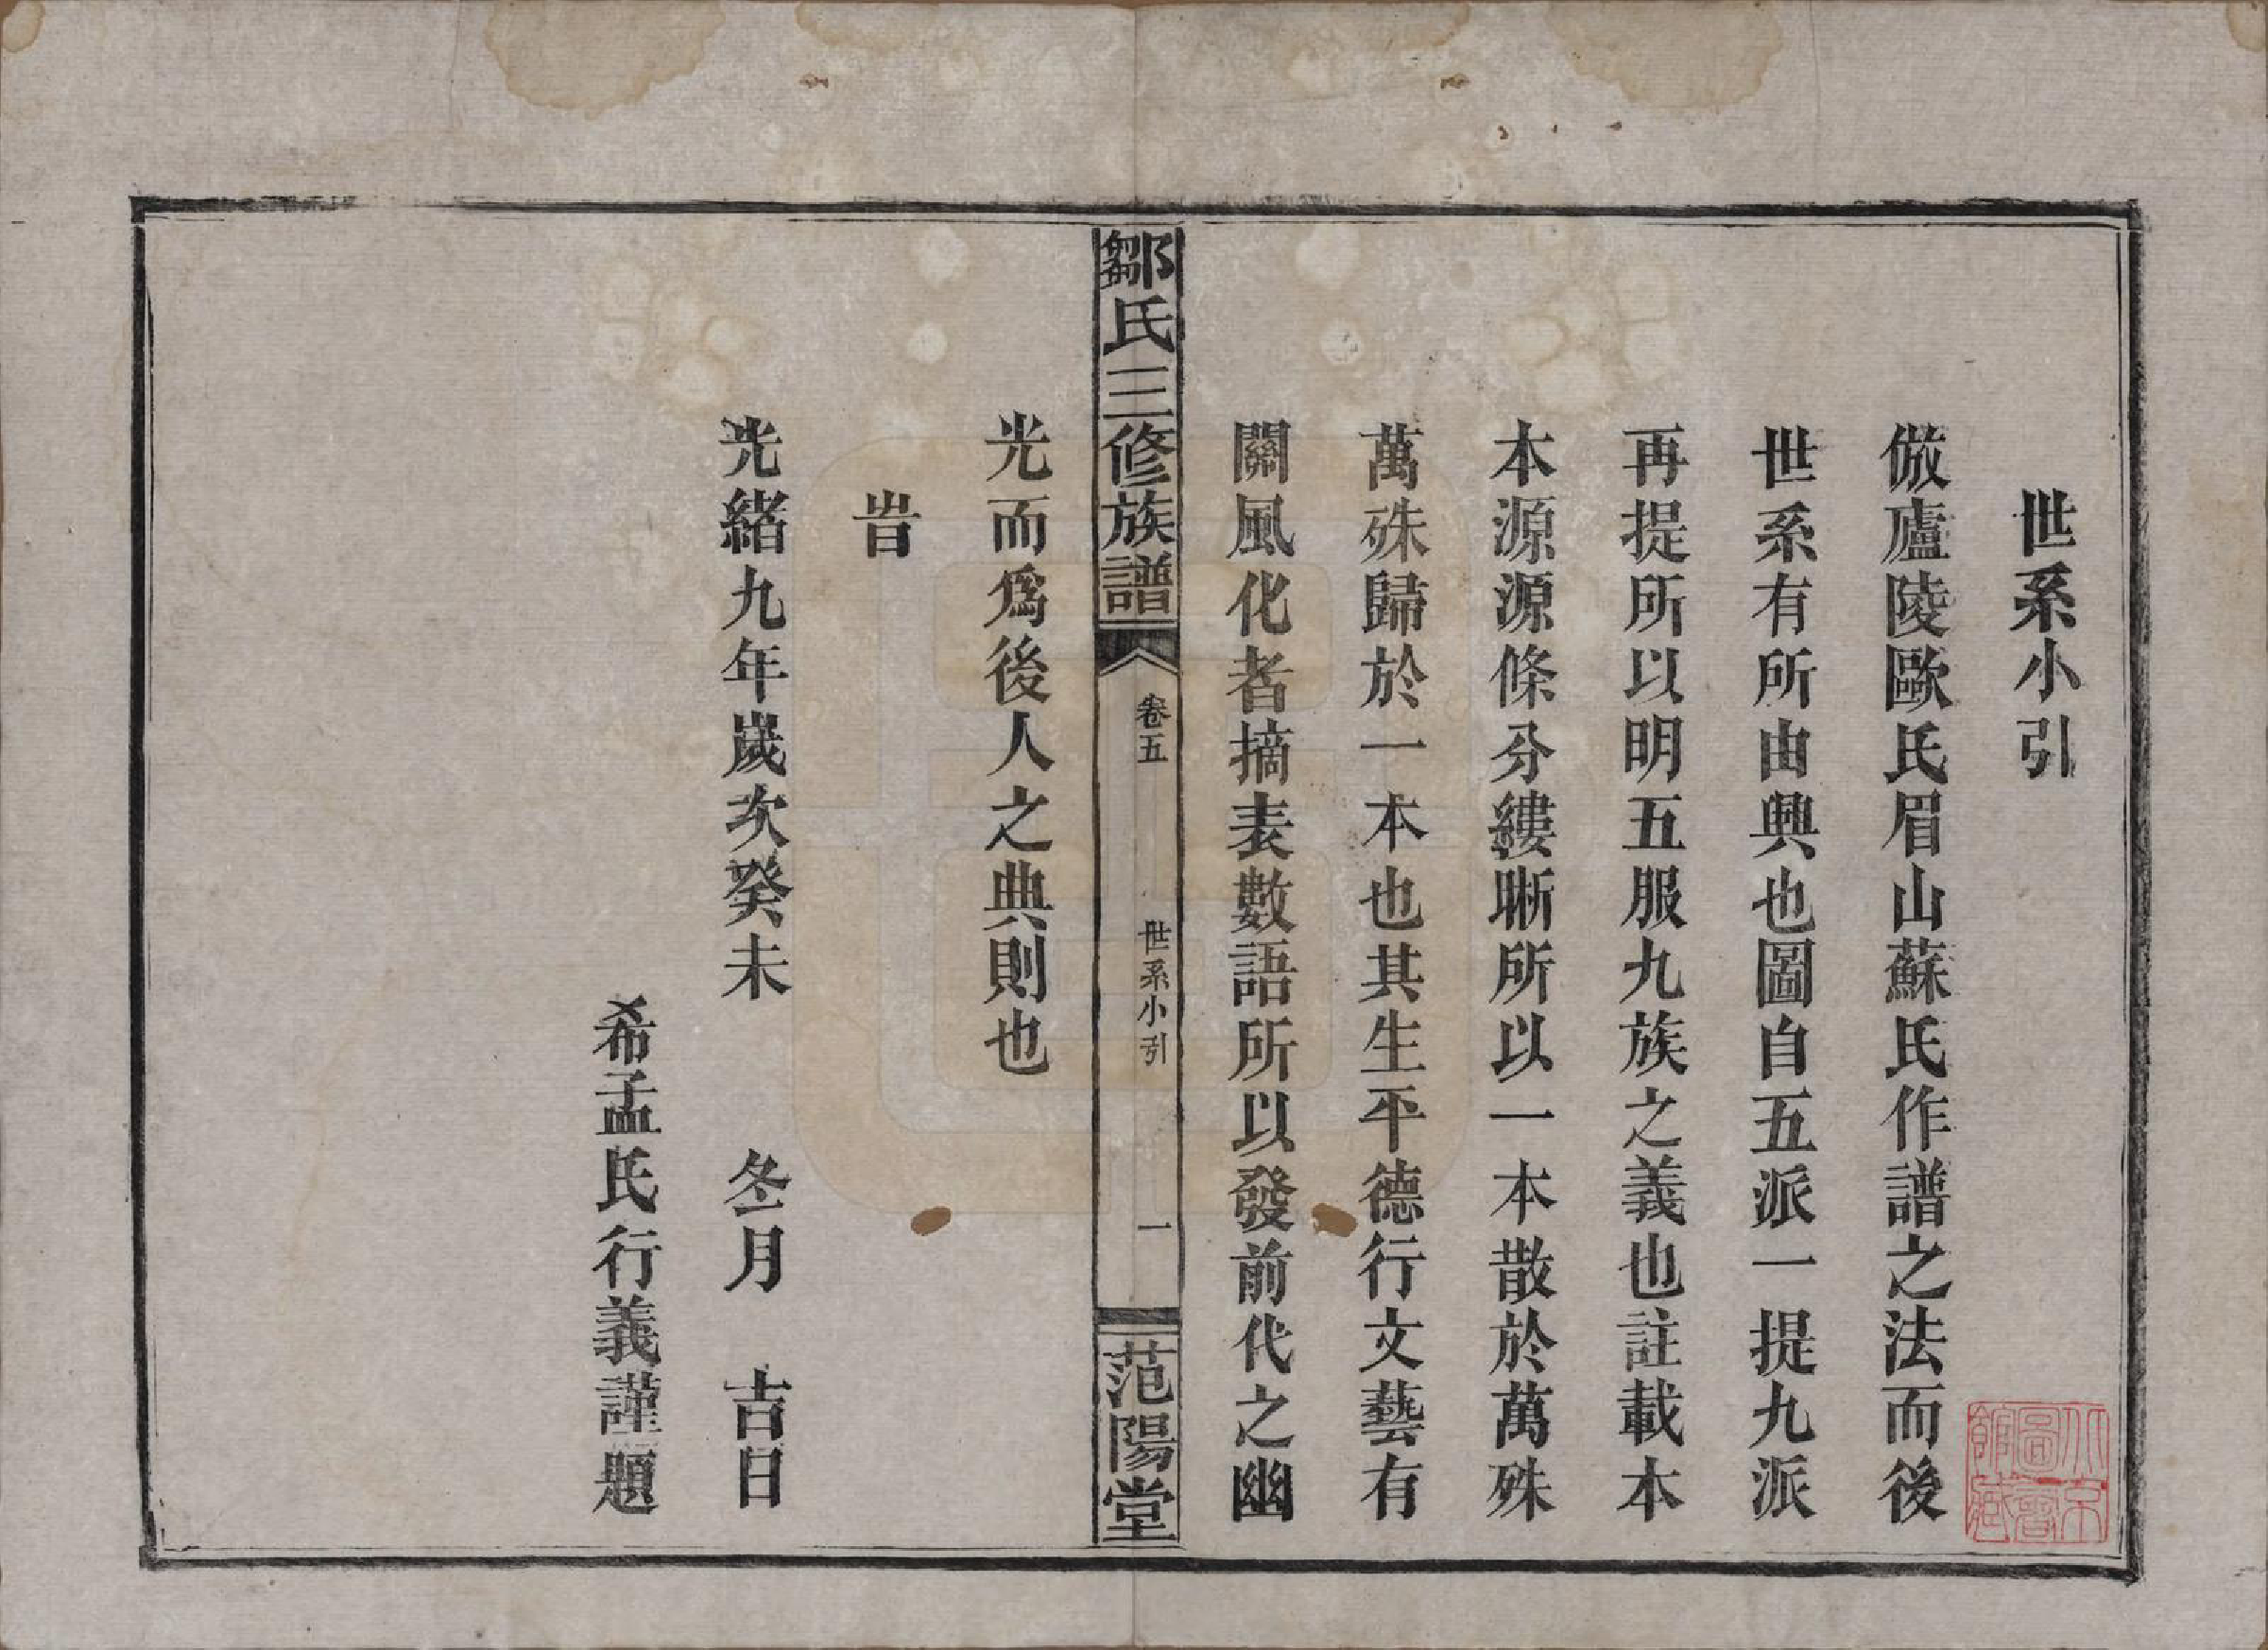 世系小引
倣廬陵歐氏眉山蘇氏作譜之法而後
世系有所由興也圖自五派一提九派
再提所以明五服九族之義也註載本
本源源條分縷晰所以一本散於萬殊
萬殊歸於一本也其生平德行文藝有
關風化者摘表數語所以發前代之幽
鄒氏三修族譜
卷五
世系小引
一
范陽堂
光而爲後人之典則也
旹
光緒九年歲次癸未 冬月 吉日
希孟氏行義謹題
北京圖書館藏